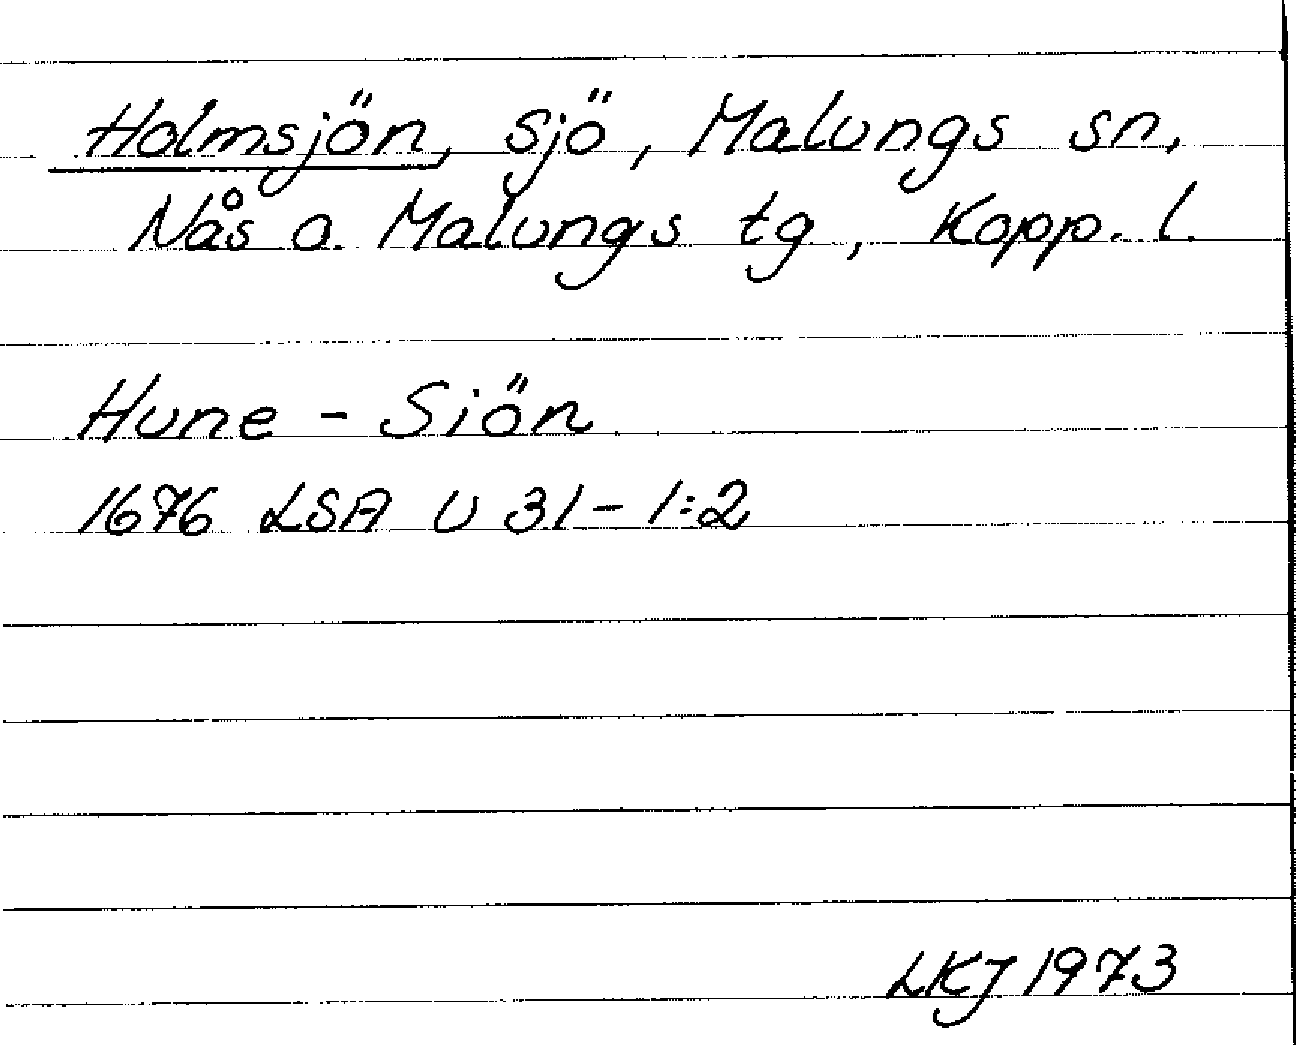 Holmsjön, sjö, Malungs sn,
Nås o. Malungs tg, Kopp. l.
Hune - Siön
1676 LSA U 31 - 1:2
LKJ 1973